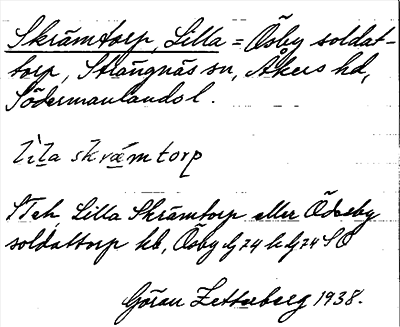 Skrämtorp, Lilla = Ösby soldat-
torp, Strängnäs sn, Åkers hd,
Södermanlands l.
lìla skræmtorp
Lilla Skrämtorp eller Ödesby
soldattorp hb, Ösby
Göran Zetterberg 1938.